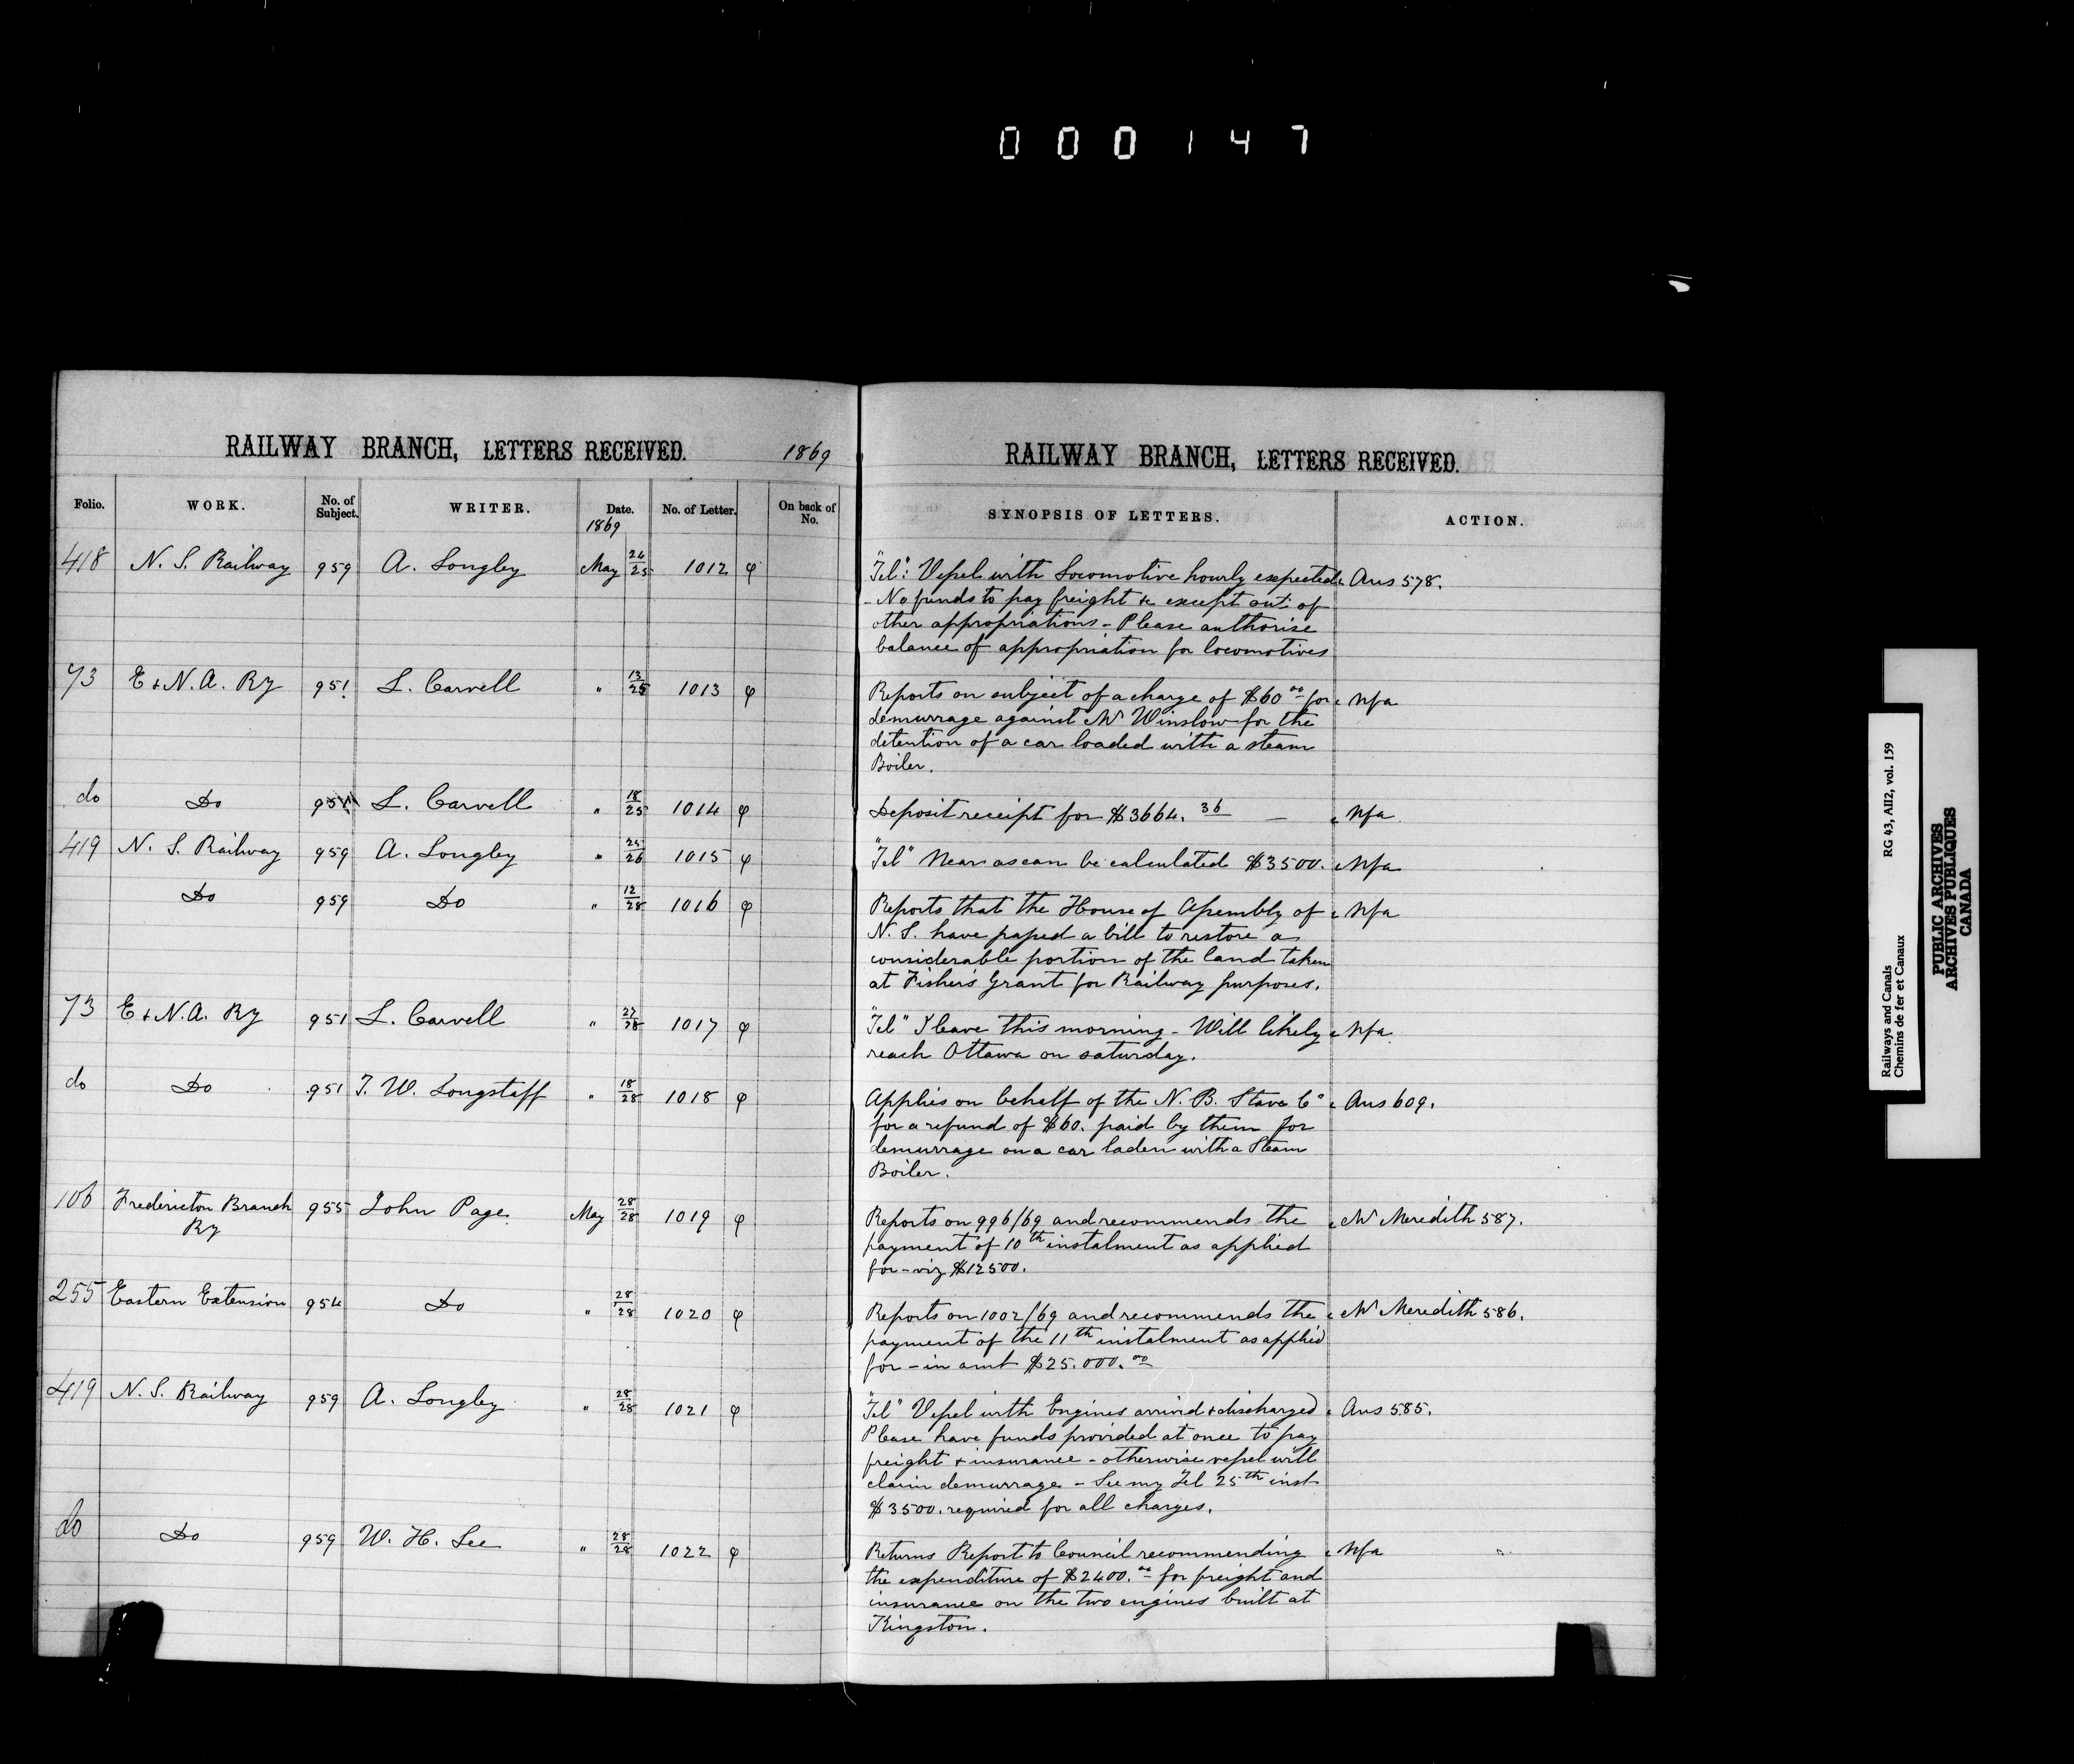 000147
RAILWAY BRANCH, LETTERS RECEIVED. 1869
Folio. WORK. No. of Subject. WRITER. Date. 1869 No. of Letter. On back of No.
418 N. S. Railway 959 A. Longley May 24/25 1012 φ
73 E & N.A. Ry 951 L. Carvell " 13/25 1013 φ
do Do 951 L. Carvell " 18/25 1014 φ
419 N. S. Railway 959 A. Longley " 25/26 1015 φ
Do 959 Do " 12/28 1016 φ
73 E & N.A. Ry 951 L. Carvell " 27/28 1017 φ
do Do 951 T. W. Longstaff " 18/28 1018 φ
106 Fredericton Branch Ry 955 John Page May 28/28 1019 φ
255 Eastern Extension 954 Do " 28/28 1020 φ
419 N. S. Railway 959 A. Longley " 28/28 1021 φ
do Do 959 W. H. Lee " 28/28 1022 φ
RAILWAY BRANCH, LETTERS RECEIVED.
SYNOPSIS OF LETTERS. ACTION.
"Tel": Vessel with Locomotive hourly expected Ans 578.
- No funds to pay freight &c except out of
other appropriations - Please authorise
balance of appropriation for locomotives
Reports on subject of a charge of $60 00 for Nfa
demurrage against Mr Winslow for the
detention of a car loaded with a steam
Boiler.
Deposit receipt for $3664. 36 — Nfa
"Tel" Near as can be calculated $3500. Nfa
Reports that the House of Assembly of Nfa
N. S. have passed a bill to restore a
considerable portion of the land taken
at Fisher's Grant for Railway purposes.
"Tel" I leave this morning - Will likely Nfa
reach Ottawa on saturday.
Applies on behalf of the N. B. Stave Co Ans 609.
for a refund of $60. paid by them for
demurrage on a car laden with a Steam
Boiler.
Reports on 996/69 and recommends the Mr Meredith 587.
payment of 10th instalment as applied
for - viz $12500.
Reports on 1002/69 and recommends the Mr Meredith 586.
payment of the 11th instalment as applied
for - in amt $25.000.00
"Tel" Vessel with Engines arrived & discharged Ans 585.
Please have funds provided at once to pay
freight & insurance - otherwise vessel will
claim demurrage - See my Tel 25th inst
$3500. required for all charges.
Returns Report to Council recommending Nfa
the expenditure of $2400.00 for freight and
insurance on the two engines built at
Kingston.
Railways and Canals RG 43, AII2, vol. 159
Chemins de fer et Canaux
PUBLIC ARCHIVES
ARCHIVES PUBLIQUES
CANADA